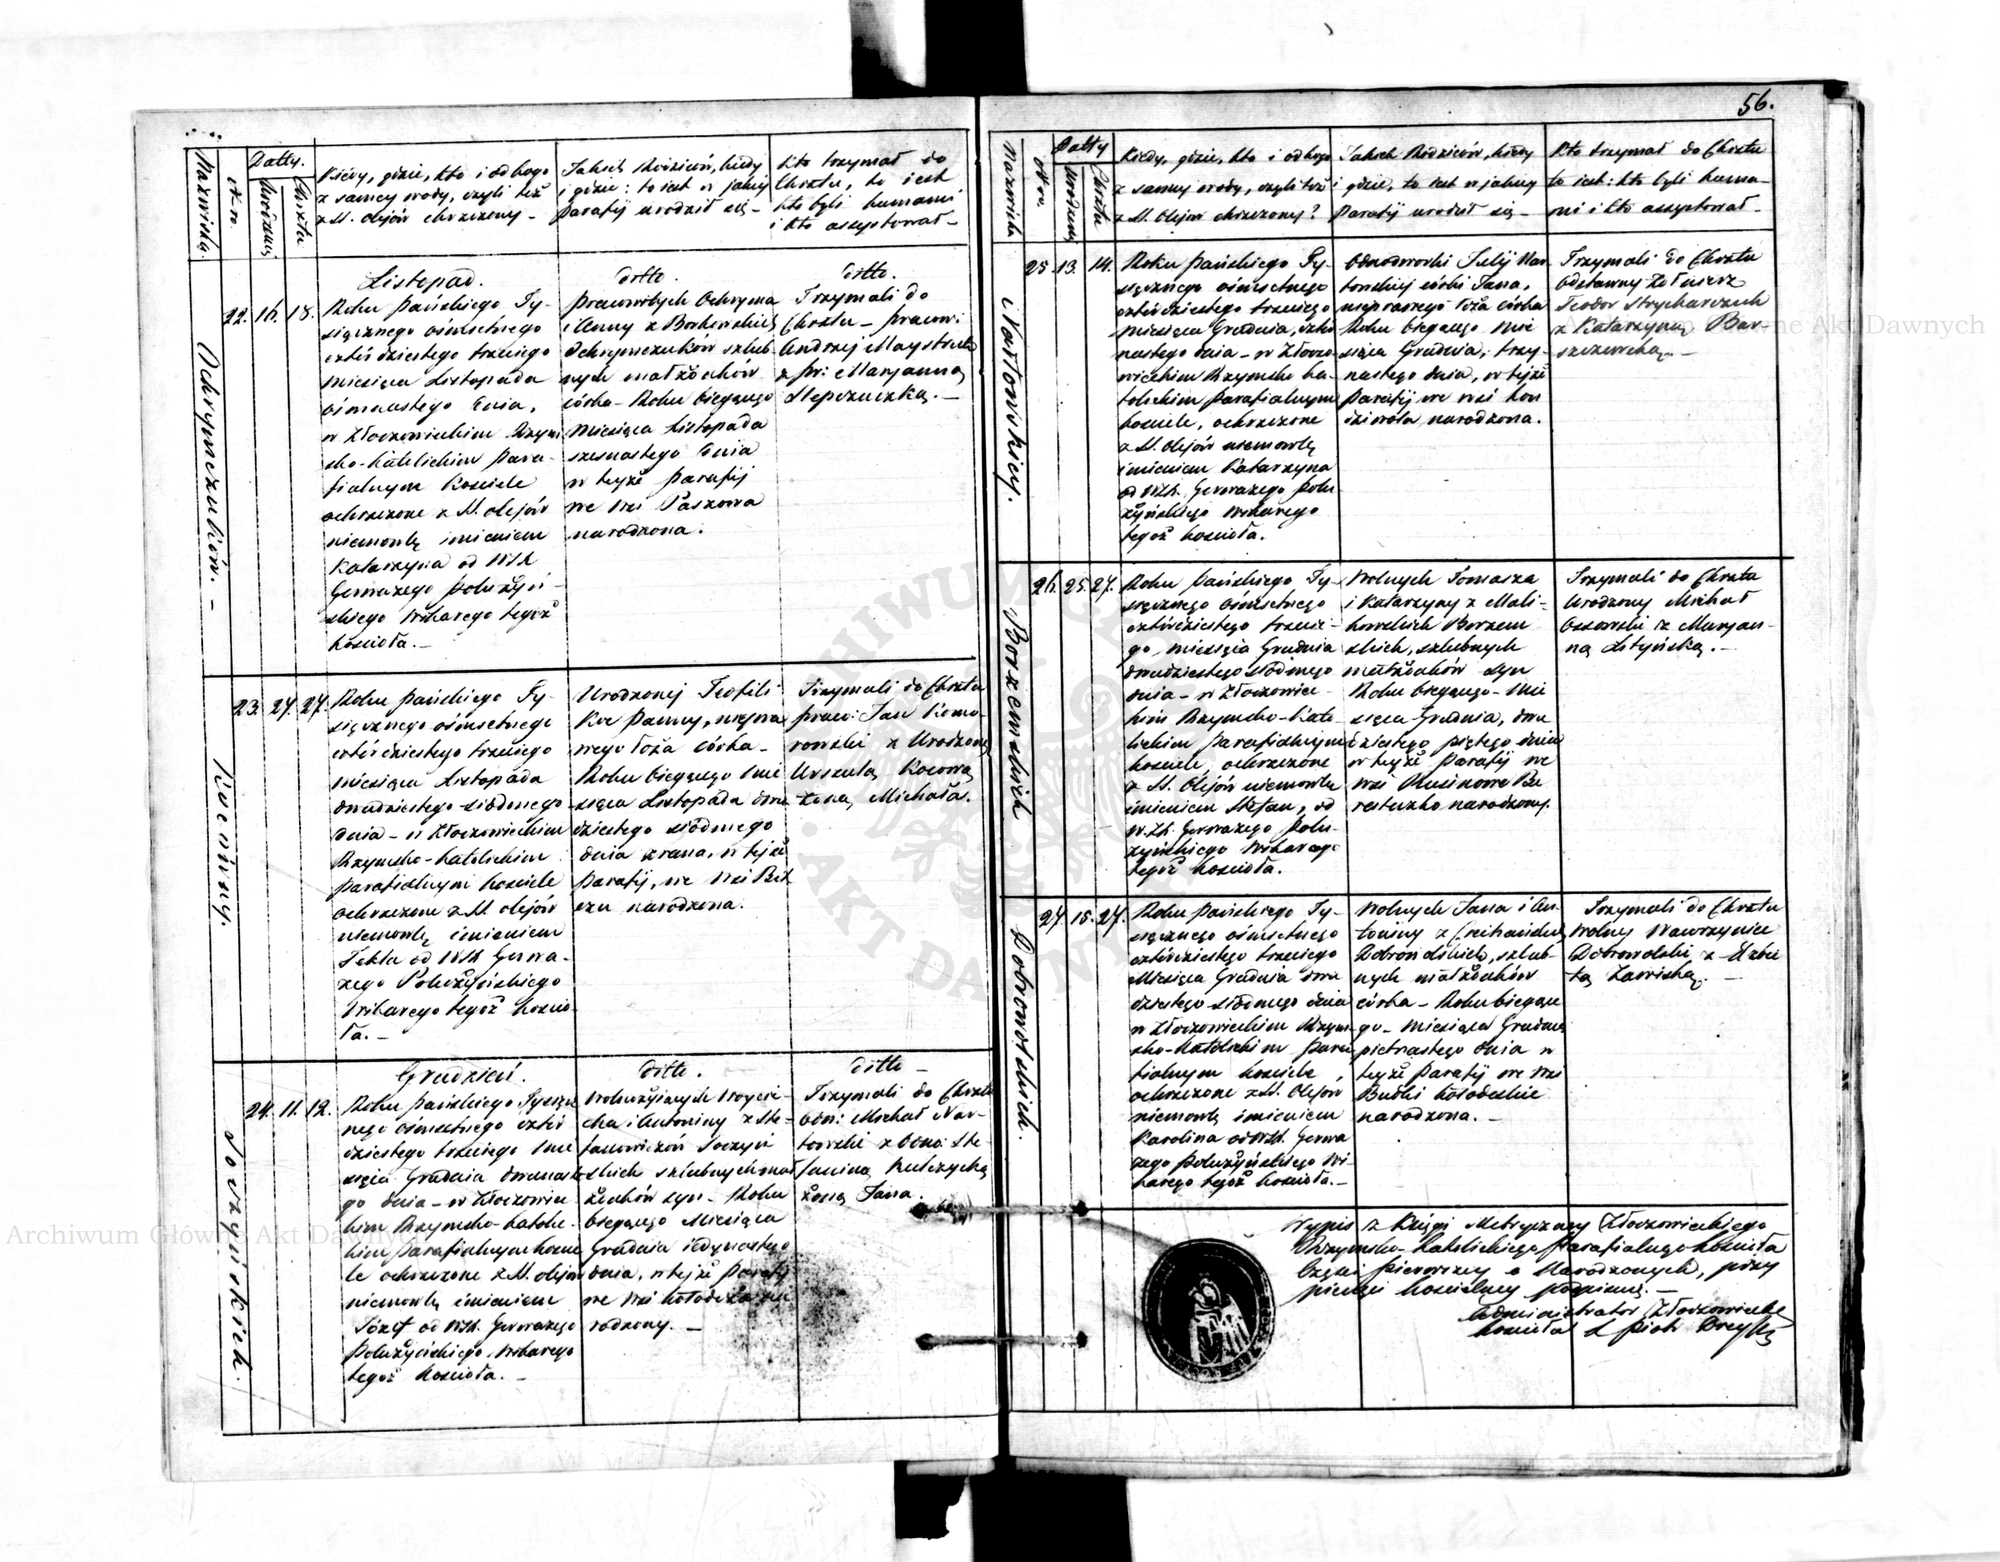 56.
Nazwiska.
Nro.
Datty.
Urodzenia
Chrztu
Kiedy, gdzie, kto i od kogo
z samey wody, czyli też
z S. olejów chrzczony –
Jakich Rodziców, kiedy
i gdzie: to iest w jakiey
Parafij urodził się –
Kto trzymał do
Chrztu, to iest
kto byli kumami
i kto assystował –
Listopad.
ditto.
ditto.
Ochrymczuków. –
22. 16. 18.
Roku Pańskiego Ty-
siącznego ośmsetnego
czterdziestego trzeciego
miesiąca Listopada
ośmnastego dnia,
w Złoczowieckim Rzym
sko-Katolickim Para-
fialnym Kościele
ochrzczone z S. olejów
niemowlę imieniem
Katarzyna od WJX
Gerwazego Połuzyń-
skiego Wikarego tegoż
kościoła. –
pracowitych Ochryma
i Anny z Borkowskich
Ochrymczuków szlub-
nych małżonków
córka – Roku bieżącego
miesiąca Listopada
szesnastego dnia
w teyże parafij
we wsi Paszowa
narodzona.
Trzymali do
Chrztu – pracow:
Andrzej Maystruk
z pr: Maryanną
Stepczuczką. –
23. 27. 27.
Roku Pańskiego Ty-
siącznego ośmsetnego
czterdziestego trzeciego
miesiąca Listopada
dwudziestego siódmego
dnia – w Złoczowieckim
Rzymsko-Katolickim
parafialnym kościele
ochrzczone z S. olejów
niemowlę imieniem
Tekla od WJX Gerwa-
zego Połuzyńskiego
Wikarego tegoż kościo-
ła. –
Urodzonej Teofili
Koc Panny, niepra
wego łoża córka –
Roku bieżącego mie
siąca Listopada dwu
dziestego siódmego
dnia zrana, w tejże
parafij, we wsi
narodzona.
Trzymali do Chrztu
pracow: Jan Komo-
rowski z Urodzoną
Urszulą Kocową
żoną Michała.
Grudzień.
ditto.
ditto –
24. 11. 12.
Roku Pańskiego Tysiącz
nego ośmsetnego czter
dziestego trzeciego mie
siąca Grudnia dwunaste
go dnia – w Złoczowiec
kim Rzymsko-Katolic-
kim parafialnym koście
le ochrzczone z S. olejów
niemowlę imieniem
Józef od WJX. Gerwazego
Połuzyńskiego Wikarego
tegoż kościoła. –
Woycie-
cha i Antoniny z Ste-
fanowiczów
skich szlubnych mał
żonków syn – Roku
bieżącego Miesiąca
Grudnia iedynastego
dnia, w tejże Parafij
we wsi na
rodzony. –
Trzymali do Chrztu
Odn: Michał Nar-
towski z Odno: Ste-
faniną Kulczycką
żoną Jana.
Nazwiska
Nro.
Datty
Urodzenia
Chrztu
Kiedy, gdzie, kto i od kogo
z samey wody, czyli też
z S. Olejów chrzczony?
Jakich Rodziców, kiedy
i gdzie, to iest w jakiey
Parafij urodził się –
Kto trzymał do Chrztu
to iest: kto byli kuma-
mi i kto assystował –
25. 13. 14.
Roku Pańskiego Ty-
siącznego ośmsetnego
czterdziestego trzeciego
miesiąca Grudnia, czter
nastego dnia – w Złoczo-
wieckim Rzymsko ka-
tolickim parafialnym
kościele, ochrzczone
z S. Olejów niemowlę
imieniem Katarzyna
od WJX. Gerwazego Połu-
zyńskiego Wikarego
tegoż kościoła.
Odnodworki Julij Nar-
towskiej córki Jana,
nieprawego łoża córka
Roku bieżącego mie
siąca Grudnia, trzy-
nastego dnia, w tejże
Parafij we wsi
narodzona.
Trzymali do Chrztu
Odstawny Żołnierz
Teodor Strycharczuk
z Katarzyną Bar-
szczewską. –
Borzemskich
26. 25. 27.
Roku Pańskiego Ty-
siącznego ośmsetnego
czterdziestego trzecie-
go, miesiąca Grudnia
dwudziestego siódmego
dnia – w Złoczowiec-
kim Rzymsko-Kato-
lickim parafialnym
kościele, ochrzczone
z S. Olejów niemowlę
imieniem Stefan, od
WJX. Gerwazego Połu-
zyńskiego Wikarego
tegoż kościoła.
Wolnych Tomasza
i Katarzyny z Mali-
kowskich Borzem
skich, szlubnych
małżonków syn
Roku bieżącego – mie
siąca Grudnia, dwu
dziestego piętego dnia
w tejże Parafij we
wsi Rusinowe Be
resteczko narodzony.
Trzymali do Chrztu
Urodzony Michał
Ossowski z Maryan-
ną Lityńską. –
Dobrowolskich.
27. 15. 27.
Roku Pańskiego Ty-
siącznego ośmsetnego
czterdziestego trzeciego
Miesiąca Grudnia dwu
dziestego siódmego dnia
w Złoczowieckim Rzym
sko-Katolickim para
fialnym kościele,
ochrzczone z S. Olejów
niemowlę imieniem
Karolina od WJX. Gerwa
zego Połuzyńskiego Wi-
karego tegoż kościoła. –
Wolnych Jana i An-
toniny z
Dobrowolskich, szlub-
nych małżonków
córka – Roku bieżące
go – miesiąca Grudnia
piętnastego dnia w
tejże Parafij we wsi
Budki
narodzona. –
Trzymali do Chrztu
Wolny Wawrzyniec
Dobrowolski z Elżbie
tą Zawiską. –
Wypis z Księgi Metryczney Złoczowieckiego
Rzymsko-Katolickiego Parafialnego kościoła
Części pierwszey o Narodzonych, przy
pieczęci kościelney podpisuię. –
Administrator Złoczowieckiego
kościoła X Piotr
Archiwum Główne Akt Dawnych
Archiwum Główne Akt Dawnych